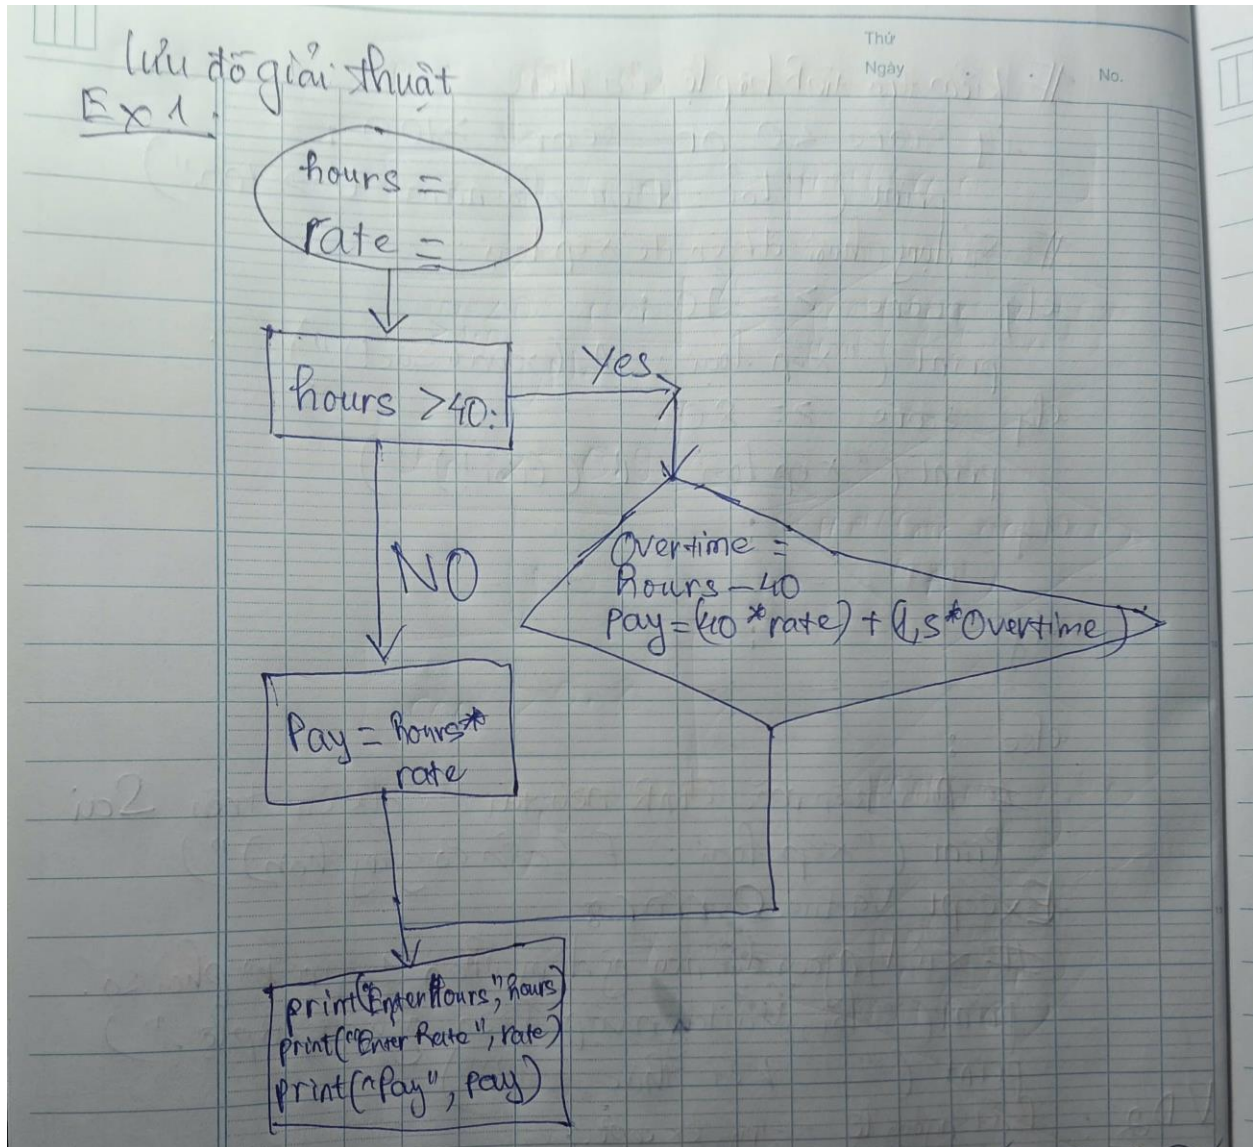 Thứ
Ngày
No.
lưu đồ giải thuật
Ex 1:
hours =
rate =
hours >40:
Yes
NO
Overtime =
hours - 40
Pay = (40 * rate) + (1,5 * Overtime)
Pay = hours *
rate
print("Enter Hours", hours)
print("Enter Rate", rate)
print("Pay", pay)